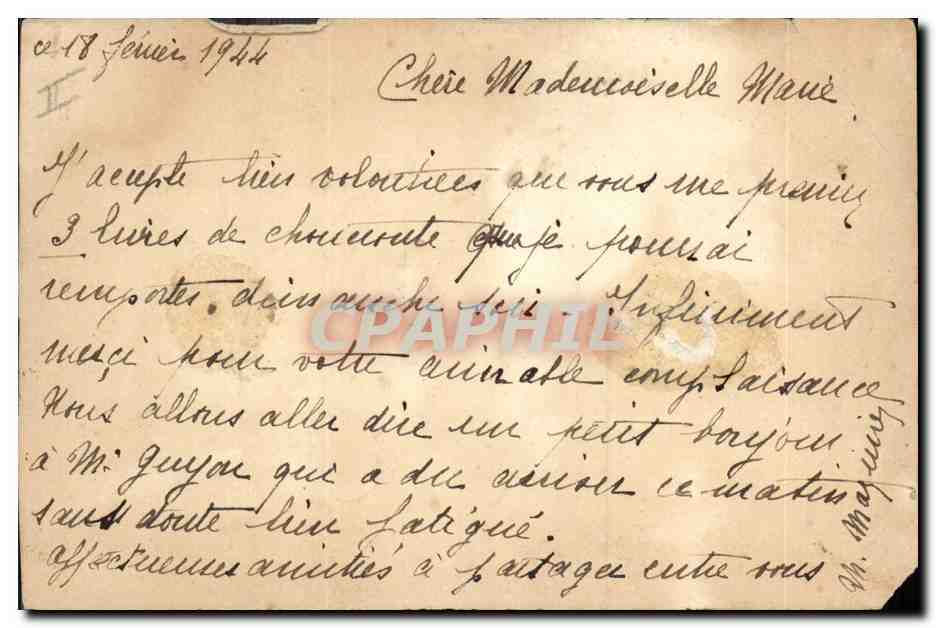 ce 18 février 1944
II
Chère Mademoiselle Marie
J'accepte bien volontiers que vous me preniez
3 livres de choucroute que je pourrai
remporter dimanche soir - Infiniment
merci pour votre aimable complaisance
Nous allons aller dire un petit bonjour
à Mr Guyon qui a du arriver ce matin
sans doute bien fatigué.
affectueuses amitiés à partager entre vous
CPAPHIL